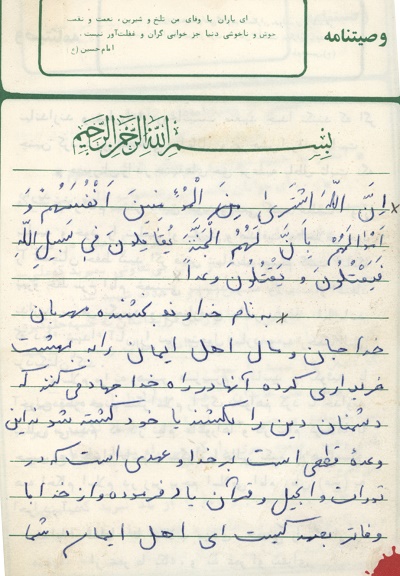 وصیتنامه
ای یاران با وفای من تلخ و شیرین، نعمت و نقمت
خوش و ناخوشی دنیا جز خوابی گران و غفلت‌آور نیست .
امام‌حسین (ع)
بسم الله الرحمن الرحیم
إنَّ اللّهَ اشْتَرىٰ مِنَ الْمُؤْمِنينَ أَنْفُسَهُمْ وَ
أَمْوالَهُمْ بِأَنَّ لَهُمُ الْجَنَّةَ يُقاتِلونَ فی سبیلِ اللّهِ
فَيَقْتُلُونَ وَ يُقْتَلُونَ وعداً
به نام خداوند بخشنده مهربان
خدا جان و مال اهل ایمان را به بهشت
خریداری کرده آنها در راه خدا جهاد می‌کنند که
دشمنان دین را بکشند یا خود کشته شوند این
وعدهٔ قطعی است بر خدا و عهدی است که در
تورات و انجیل و قرآن یاد فرموده و از خدا با
وفاتر بعهد کیست ای اهل ایمان شما